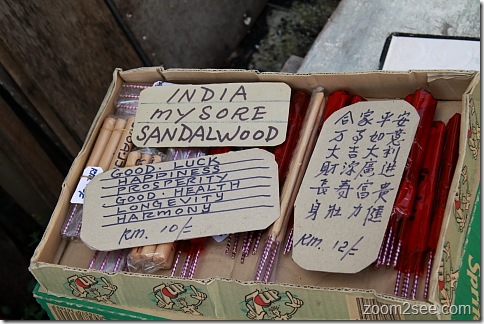 INDIA
MYSORE
SANDALWOOD
GOOD. LUCK
HAPPINESS
PROSPERITY
GOOD. HEALTH
LONGEVITY
HARMONY
RM. 10/-
合家平安
万事如意
大吉大利
财源广进
长寿富贵
身壮力健
RM. 12/-
zoom2see.com